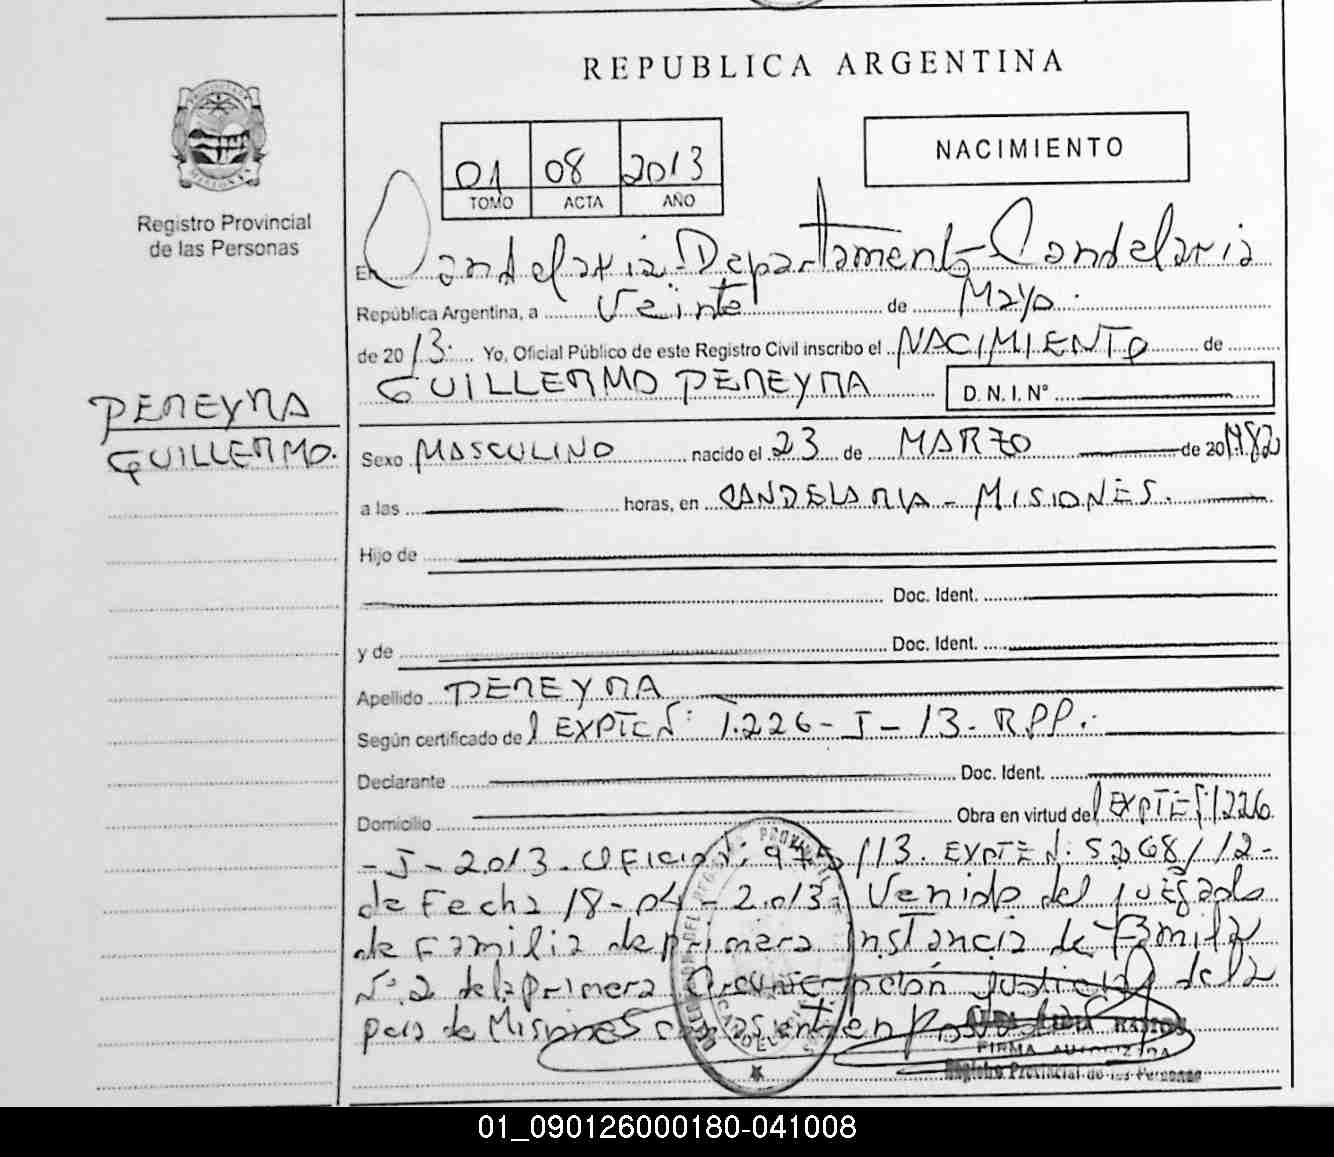 REPUBLICA ARGENTINA
01 08 2013
TOMO ACTA AÑO
NACIMIENTO
Registro Provincial
de las Personas
En Candelaria Departamento Candelaria
República Argentina, a Veinte de Mayo.
de 2013. Yo, Oficial Público de este Registro Civil inscribo el NACIMIENTO de
GUILLERMO PEREYRA D. N. I. N°
PEREYRA
GUILLERMO.
Sexo MASCULINO nacido el 23 de MARZO de 20 1.982
a las horas, en CANDELARIA - MISIONES.
Hijo de
Doc. Ident.
y de Doc. Ident.
Apellido PEREYRA
Según certificado de l EXPTE N: 1.226-J-13-RPP.-
Declarante Doc. Ident.
Domicilio Obra en virtud del EXPTE 1226
-J-2.013. Oficio N: 975/13. EXPTE N: 5268/12-
de Fecha 18-04-2.013- Venido del juzgado
de Familia de primera Instancia de Familia
N° 2 de la primera Circunscripción Justicial de la
de Misiones con asiento en Posadas
LIDIA RAMOS
FIRMA AUTORIZADA
Registro Provincial de las Personas
01_090126000180-041008